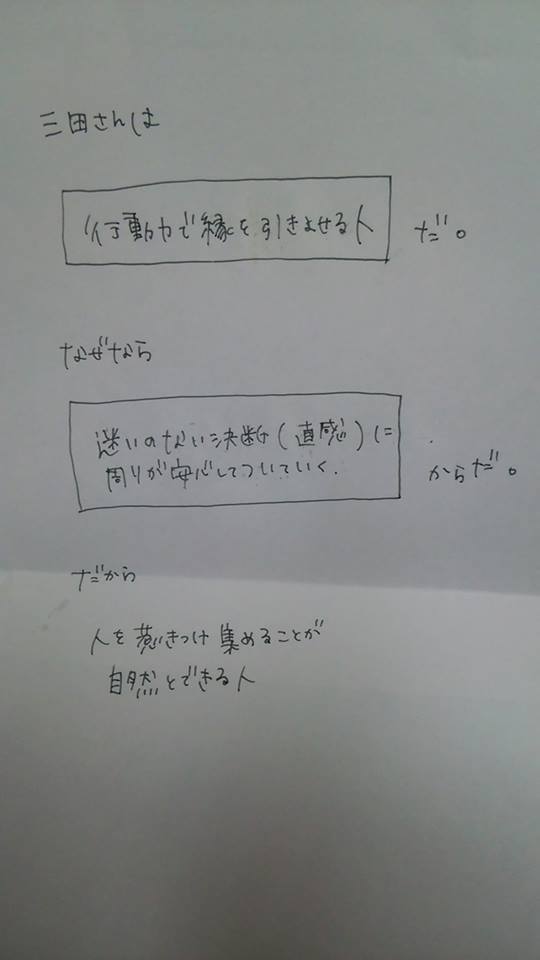 三田さんは
行動力で縁を引きよせる人 だ。
なぜなら
迷いのない決断(直感)に
周りが安心してついていく. からだ。
だから
人を惹きつけ集めることが
自然とできる人